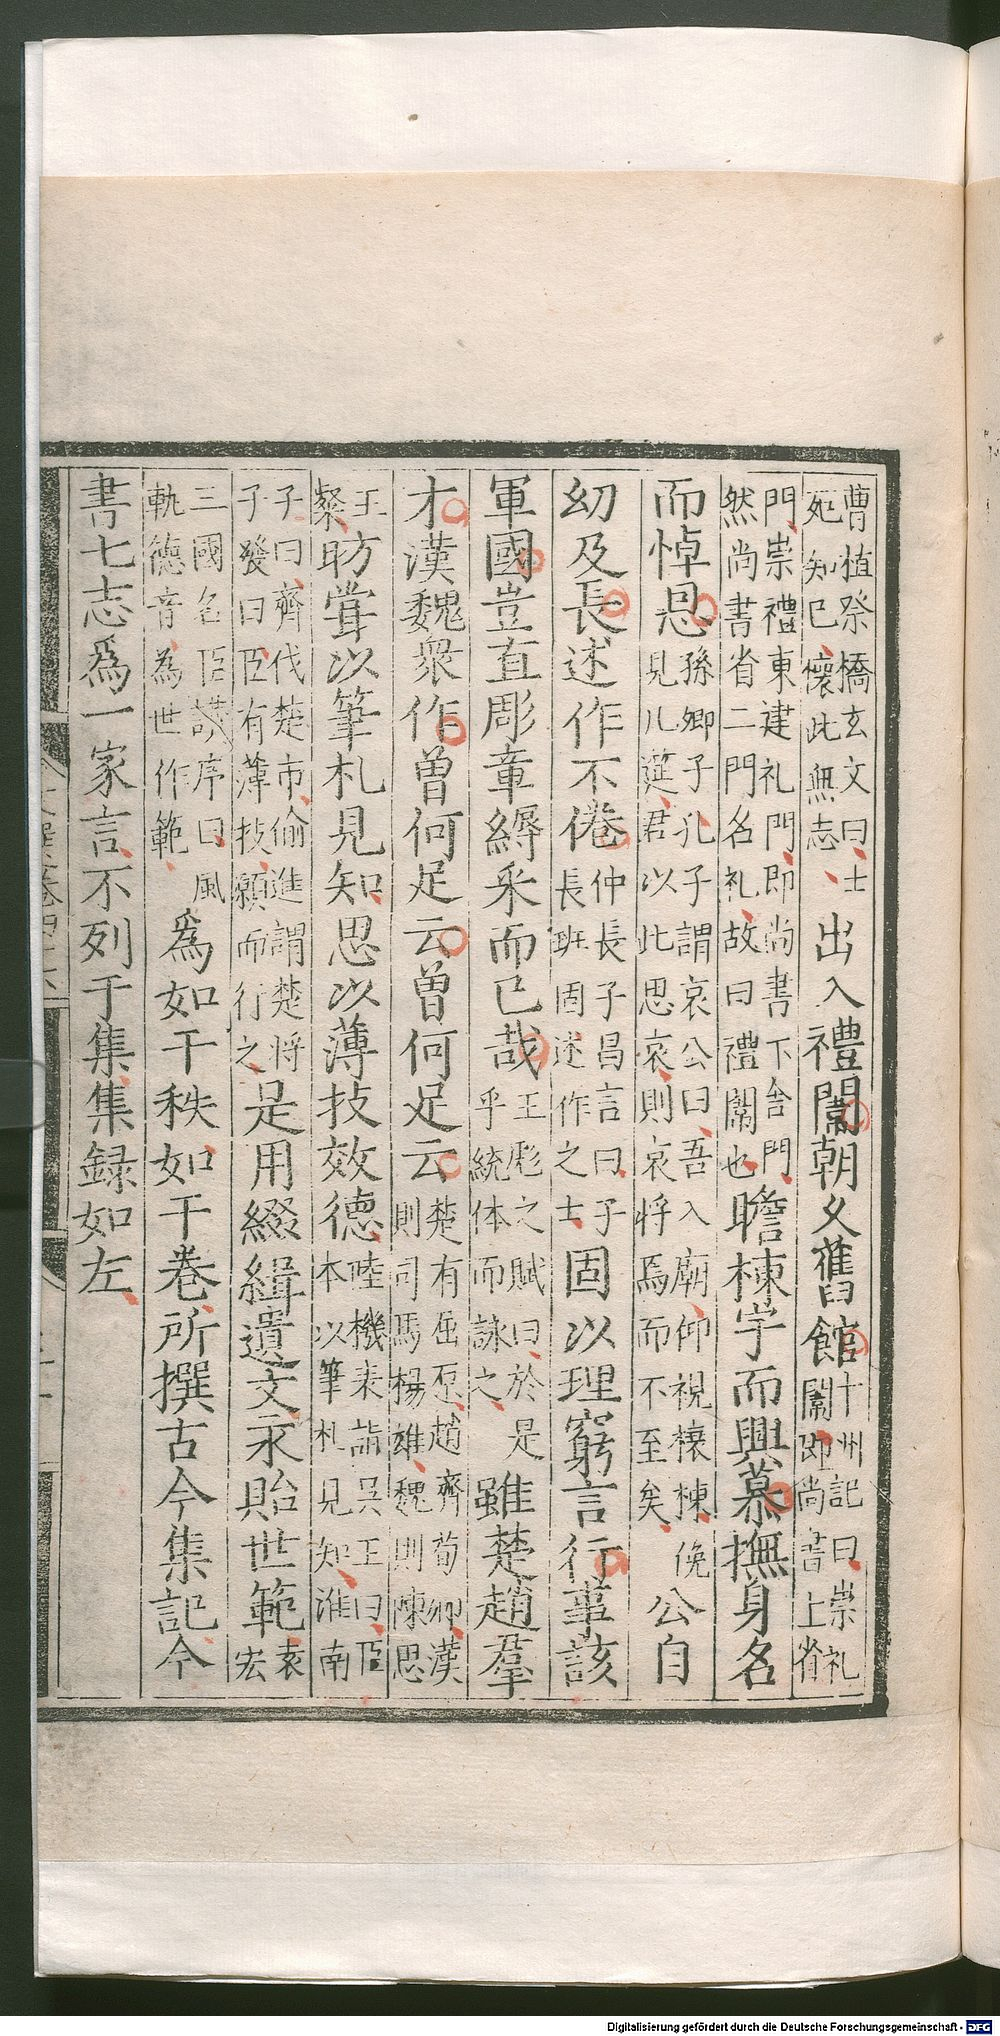 曹植祭橋玄文曰士
死知已懷此無忘
出入禮闈朝夕舊館
十州記曰崇礼
闈即尚書上省
門崇禮東建礼門即尚書下舍門
然尚書省二門名礼故曰禮闈也
瞻棟宇而興慕撫身名
而悼恩
孫卿子孔子謂哀公曰吾入廟仰視榱棟俛
見几筵君以此思哀則哀將焉而不至矣
公自
幼及長述作不倦
仲長子昌言曰子
長班固述作之士
固以理窮言行事該
軍國豈直彫章縟采而已哉
王彪之賦曰於是
乎統体而詠之
雖楚趙羣
才漢魏衆作曾何足云曾何足云
楚有屈原趙齊荀卿漢
則司馬楊雄魏則陳思
王
粲
昉嘗以筆札見知思以薄技效德
陸機表詣吴王曰臣
本以筆札見知淮南
子曰齊伐楚市偷進謂楚將
子發曰臣有薄技願而行之
是用綴緝遺文永貽世範
袁
宏
三國名臣讃序曰風
軌德音為世作範
爲如干秩如干卷所撰古今集記今
書七志爲一家言不列于集集録如左
Digitalisierung gefördert durch die Deutsche Forschungsgemeinschaft - DFG